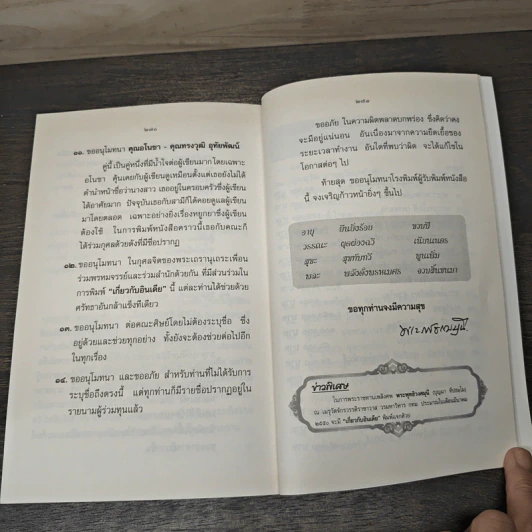 ๒๗๐
๑๑. ขออนุโมทนา คุณอโนชา - คุณทรงวุฒิ อุทัยพัฒน์
คู่นี้ เป็นคู่หนึ่งที่มีน้ำใจต่อผู้เขียนมากโดยเฉพาะ
อโนชา คุ้นเคยกับผู้เขียนดูเหมือนตั้งแต่เธอยังไม่ได้
คำนำหน้าชื่อว่านางสาว เธออยู่ในครอบครัวซึ่งผู้เขียน
ได้อาศัยมาก ปัจจุบันเธอกับสามีก็ได้คอยดูแลผู้เขียน
มาโดยตลอด เฉพาะอย่างยิ่งเรื่องหยูกยาซึ่งผู้เขียน
ต้องใช้ ในการพิมพ์หนังสือคราวนี้เธอกับคณะก็
ได้ร่วมกุศลด้วยดังที่มีชื่อปรากฏ
๑๒. ขออนุโมทนา ในกุศลจิตของพระเถรานุเถระเพื่อน
ร่วมพรหมจรรย์และร่วมสำนักด้วยกัน ที่มีส่วนร่วมใน
การพิมพ์ "เกี่ยวกับอินเดีย" นี้ แต่ละท่านได้ช่วยด้วย
ศรัทธาอันกล้าแข็งทีเดียว
๑๓. ขออนุโมทนา ต่อคณะศิษย์โดยไม่ต้องระบุชื่อ ซึ่ง
อยู่ด้วยและช่วยทุกอย่าง ทั้งยังจะต้องช่วยต่อไปอีก
ในทุกเรื่อง
๑๔. ขออนุโมทนา และขออภัย สำหรับท่านที่ไม่ได้รับการ
ระบุชื่อถึงตรงนี้ แต่ทุกท่านก็มีรายชื่อปรากฏอยู่ใน
รายนามผู้ร่วมทุนแล้ว
๒๗๑
ขออภัย ในความผิดพลาดบกพร่อง ซึ่งคิดว่าคง
จะมีอยู่แน่นอน อันเนื่องมาจากความยืดเยื้อของ
ระยะเวลาทำงาน อันใดที่พบว่าผิด จะได้แก้ไขใน
โอกาสต่อๆ ไป
ท้ายสุด ขออนุโมทนาโรงพิมพ์ผู้รับพิมพ์หนังสือ
นี้ จงเจริญก้าวหน้ายิ่งๆ ขึ้นไป
อายุ ยืนยิ่งร้อย ขวบปี
วรรณะ ผุดผ่องฉวี
สุขะ สุขทันทวี พูนเพิ่ม
พละ พลัง
ขอทุกท่านจงมีความสุข
ข่าวพิเศษ
ในการพระราชทานเพลิงศพ
"เกี่ยวกับอินเดีย"